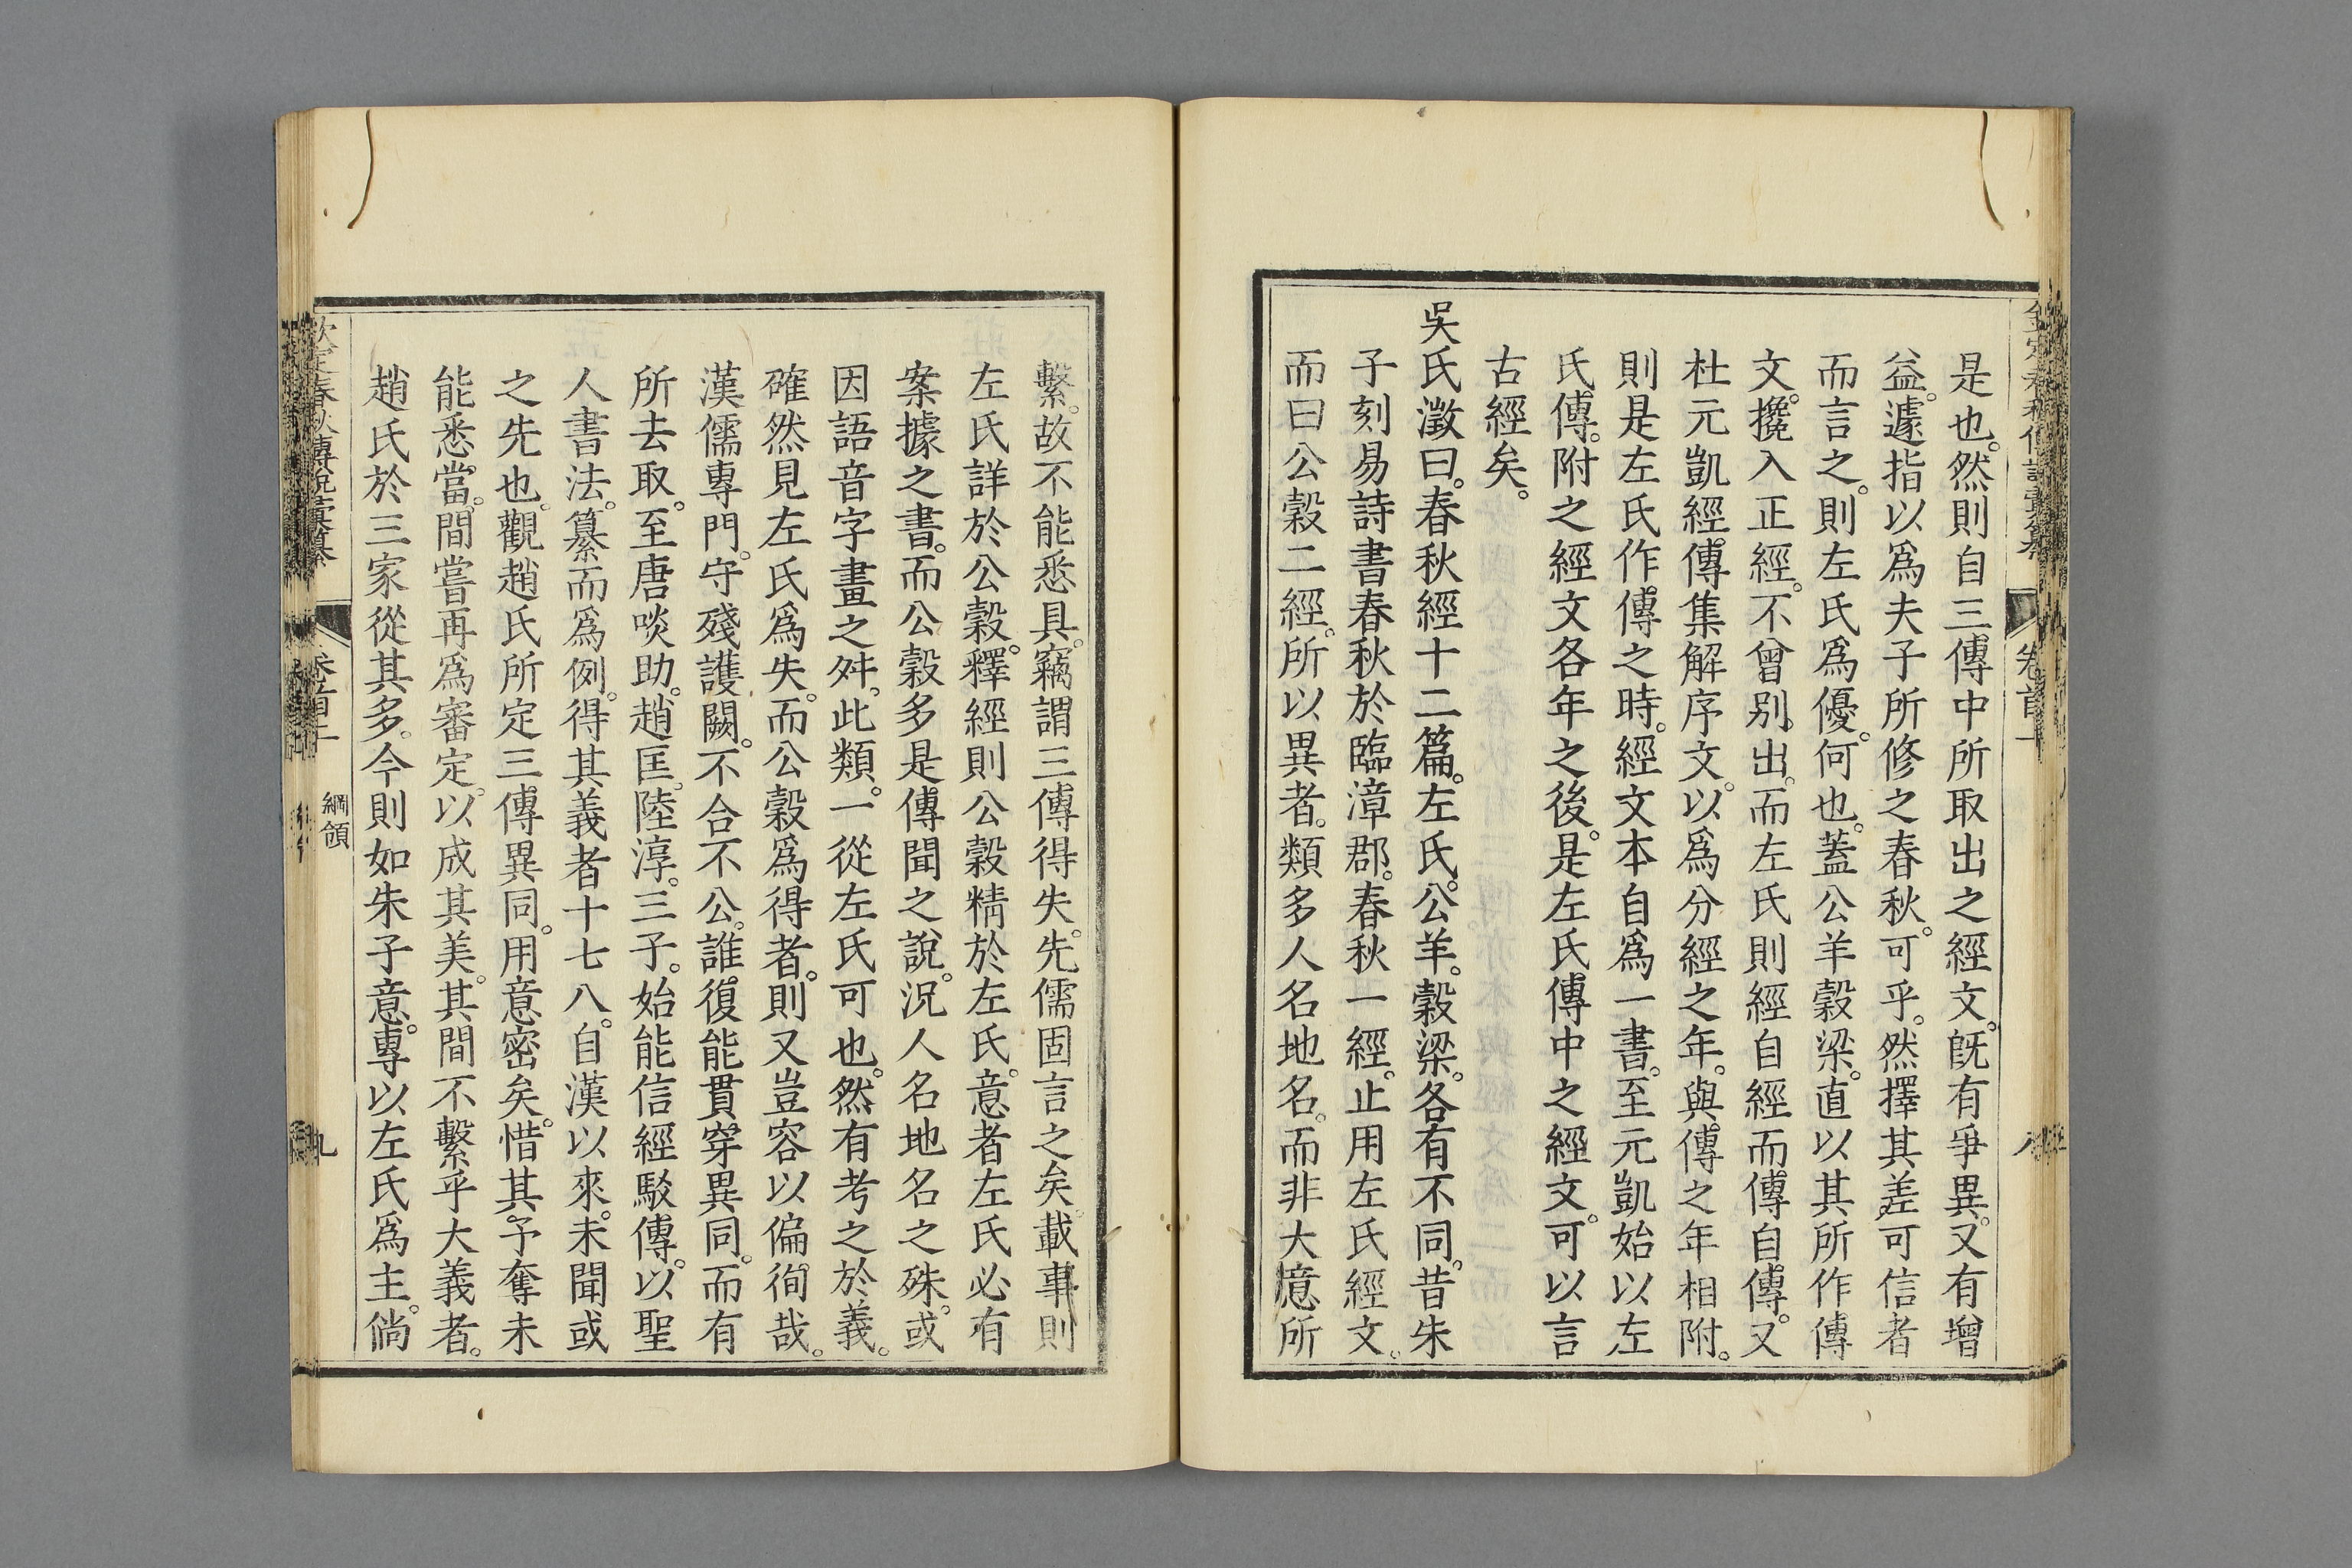 是也。然則自三傳中所取出之經文。旣有爭異。又有增
益。遽指以爲夫子所修之春秋。可乎。然擇其差可信者
而言之。則左氏爲優。何也。蓋公羊穀梁。直以其所作傳
文。攙入正經。不曾别出。而左氏則經自經而傳自傳。又
杜元凱經傳集解序文。以爲分經之年。與傳之年相附。
則是左氏作傳之時。經文本自爲一書。至元凱始以左
氏傳。附之經文各年之後。是左氏傳中之經文。可以言
古經矣。
吳氏澂曰。春秋經十二篇。左氏。公羊。穀梁。各有不同。昔朱
子刻易詩書春秋於臨漳郡。春秋一經。止用左氏經文。
而曰公穀二經。所以異者。類多人名地名。而非大意所
卷首
八
繫。故不能悉具。竊謂三傳得失。先儒固言之矣。載事則
左氏詳於公穀。釋經則公穀精於左氏。意者左氏必有
案據之書。而公穀多是傳聞之說。況人名地名之殊。或
因語音字畫之舛。此類。一從左氏可也。然有考之於義。
確然見左氏爲失。而公穀爲得者。則又豈容以偏徇哉。
漢儒專門。守殘護闕。不合不公。誰復能貫穿異同。而有
所去取。至唐啖助。趙匡。陸淳。三子。始能信經駁傳。以聖
人書法。纂而爲例。得其義者十七八。自漢以來。未聞或
之先也。觀趙氏所定三傳異同。用意密矣。惜其。予奪未
能悉當。間嘗再爲審定。以成其美。其間不繫乎大義者。
趙氏於三家從其多。今則如朱子意。專以左氏爲主。倘
欽定春秋傳說彙纂
卷首
綱領
九